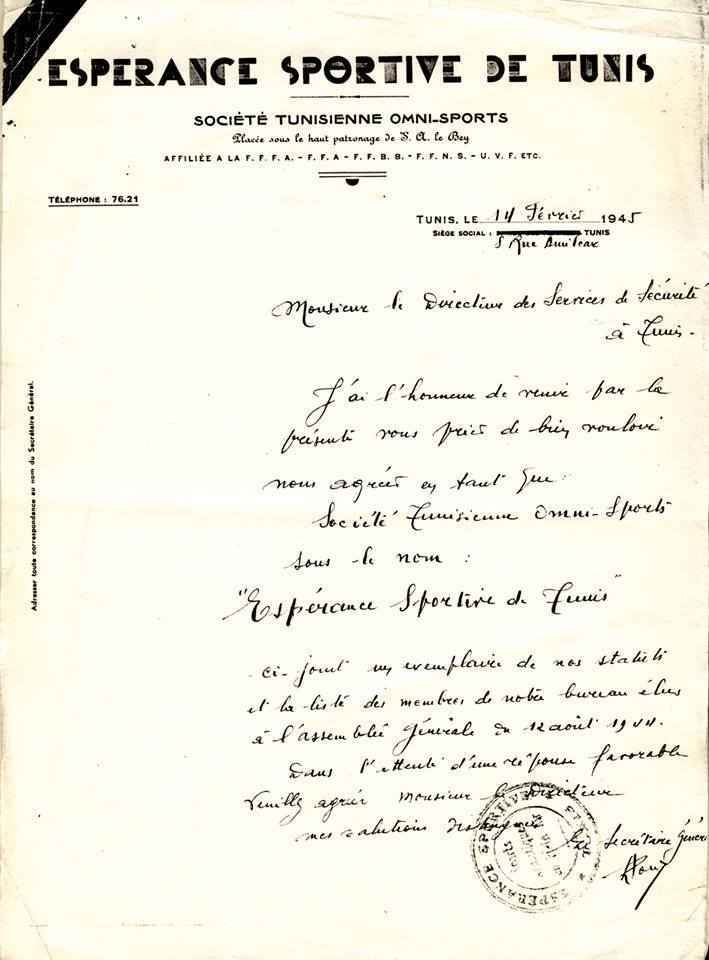 ESPERANCE SPORTIVE DE TUNIS
SOCIÉTÉ TUNISIENNE OMNI-SPORTS
Placée sous le haut patronage de S. A. le Bey
AFFILIÉE A LA F. F. F. A. - F. F. A - F. F. B. B. - F. F. N. S. - U. V. F. ETC.
TÉLÉPHONE : 76.21
TUNIS, LE 14 Février 1945
SIÈGE SOCIAL : TUNIS
5 Rue Amilcar
Monsieur le Directeur des Services de Sécurité
à Tunis.
J'ai l'honneur de venir par la
présente vous prier de bien vouloir
nous agréer en tant que :
Société Tunisienne Omni-Sports
sous le nom :
"Espérance Sportive de Tunis"
ci-joint un exemplaire de nos statuts
et la liste des membres de notre bureau élus
à l'assemblée Générale du 12 août 1944.
Dans l'attente d'une réponse favorable
Veuillez agréer Monsieur le Directeur
mes salutions distinguées
Le Secrétaire Général
ESPERANCE SPORTIVE
Adresser toute correspondance au nom du Secrétaire Général.